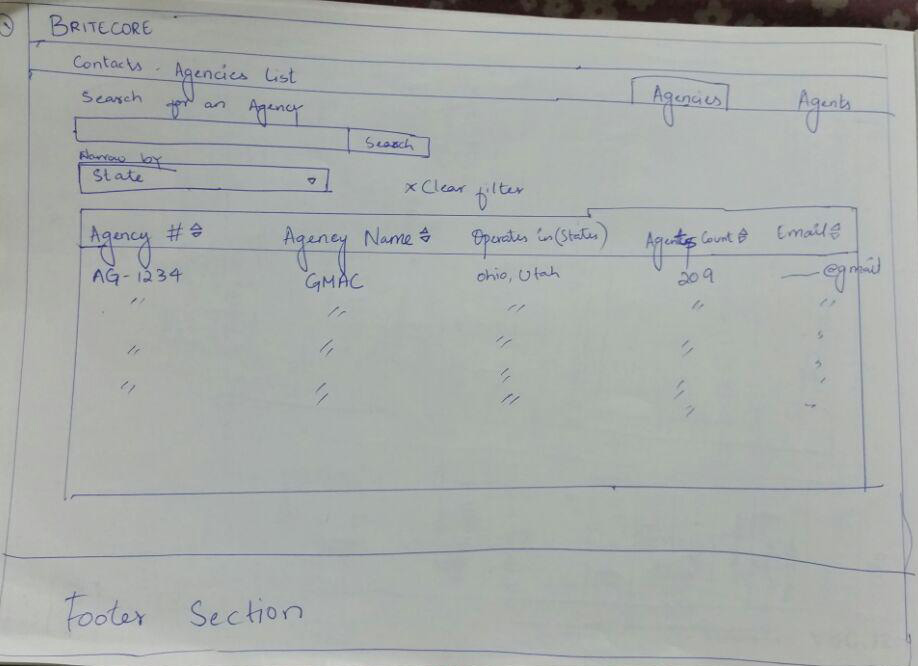 BRITECORE
Contacts . Agencies List
Agencies Agents
Search for an Agency
Search
Narrow by
State
x Clear filter
Agency # Agency Name Operates in (States) Agents Count Email
AG-1234 GMAC Ohio, Utah 209 @gmail
" " " " "
" " " "
"
" " " "
"
Footer Section